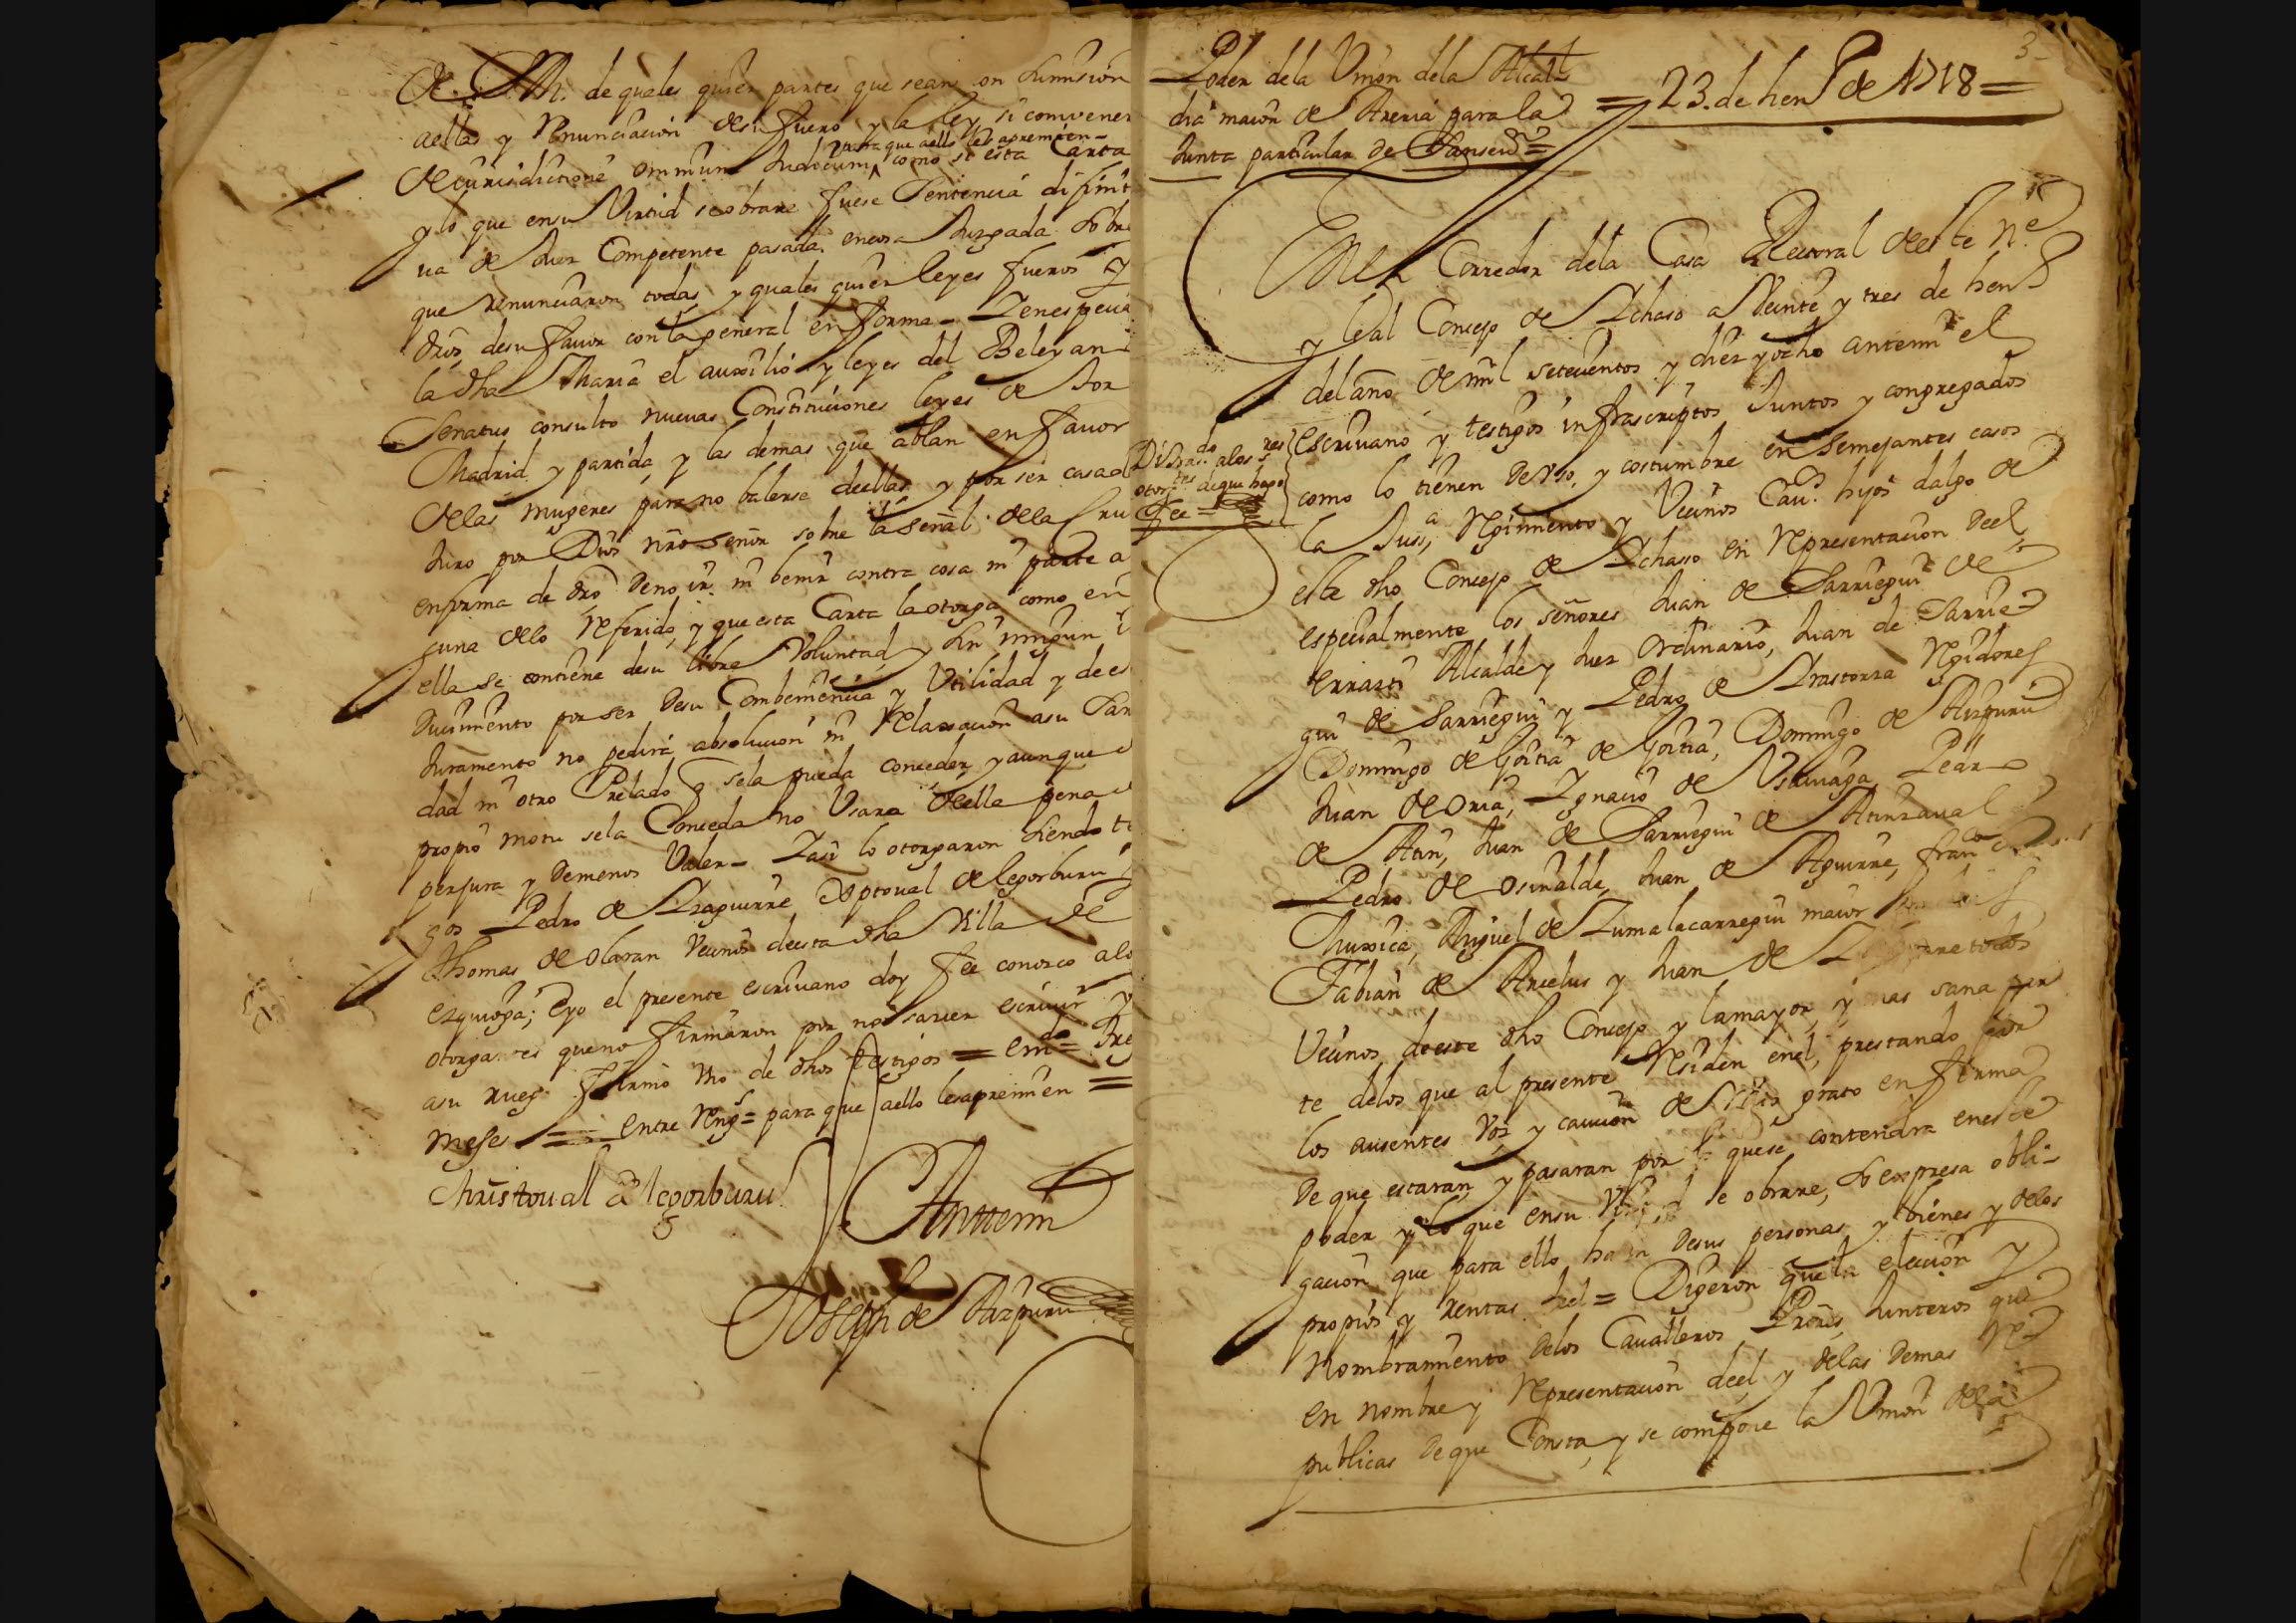 de S. M. de quales quier partes que sean con sumision
aellas y Renunciacion desu fuero y la ley si convener
para que aello les apremien
de Jurisdictione omnium Judicum como si esta Carta
y lo que ensu Virtud seobrare fuese Sentencia difinit
ua de Juez Competente pasada encosa Juzgada sobre
que renunciaron todas y quales quier leyes fueros y
dros desu fauor conla general en forma = Yenespecia
la dha Maria el auxilio y leyes del Beleyano
Senatus consulto nuevas Constituciones leyes de Tor
Madrid y partida y las demas que ablan en fauor
delas mugeres para no balerse deellas y por ser casada
Juro por Dios nro señor sobre la señal dela Cru
enforma de dro de no ir ni benir contra cosa ni parte a
guna delo Referido, y que esta Carta la otorga como en
ella se contiene desu libre Voluntad y sin ningun i
ducimento por ser desu Combeniencia y Utilidad y de es
Juramento no pedirá absolucion ni Relaxacion asu San
dad ni otro Prelado q sela pueda conceder y aunque d
propio motu sela Conceda no Usara della pena d
perjura y demenos Valer = Yasi lo otorgaron siendo te
gos Pedro de Yzaguirre Xptoual de legorburu y
Thomas de olaran Vecinos deesta dha Villa de
ezquioga; Eyo el presente escriuano doy fee conozco alo
otorgantes queno firmaron por no sauer escriuir y
asu ruego firmó vno de dhos testigos = emdo = Tre
meses = entre Rengs = para que aello lesapremien =
Christoual de legorburu
Antemi
Joseph de Aizpuru
3
Poder dela Union dela Alcal
dia maior de Areria para la
Junta particular de Sansevn =
= 23. de heno de 1718 =
Enel Corredor dela Casa Rectoral deeste Ne
y leal Concejo de Ychaso a Veinte y tres de heno
del año de mil setecientos y diez y ocho antemi el
escriuano y testigos infrascriptos Juntos y congregados
como lo tienen de vso, y costumbre en semejantes casos
la Jusa, Regimiento y Vecinos Cauos hijos dalgo de
este dho Concejo de Ychaso en Representacion deel,
especialmente los señores Juan de Sarriegui de
errasti Alcalde y Juez ordinario, Juan de Sarrie
gui de Sarriegui y Pedro de Yrastorza Regidores
Domingo de Goitia de Goitia, Domingo de Aizpuru
Juan de oria, Ygnacio de Usurvaga Pedro
de Atin, Juan de Sarriegui de Atinzaual
Pedro de osinalde, Juan de Aguirre, franco de
Muxica, Miguel de Zumalacarregui maior
Fabian de Arcelus y Juan de todos
Vecinos deeste dho Concejo y lamayor, y mas sana par
te delos que al presente Residen enel, prestando por
los ausentes Voz y caucion de Rato grato en forma
de que estaran y pasaran por lo quese contendra eneste
poder y lo que ensu Virtud se obrare, so expresa obli-
gacion que para ello hacen desus personas y bienes y delos
propios y rentas del = Digeron que la eleccion y
Nombramiento delos Caualleros Prores Junteros que
en nombre y Representacion deel, y delas demas Re
publicas de que Consta, y se compone la Union dela
Disas do alos res
otorges de que hago
fee =